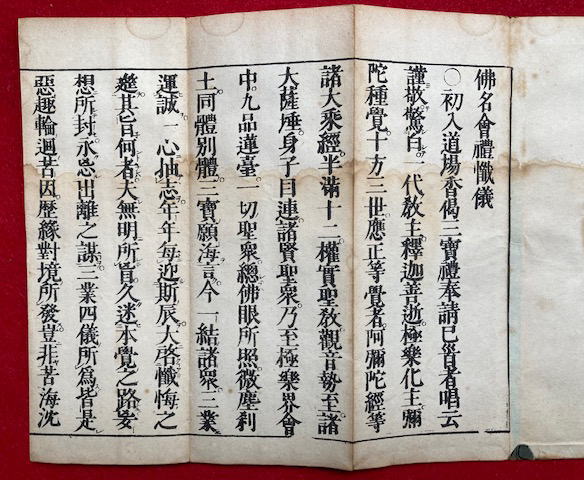 佛名會禮懺儀
〇初入道場香偈三寶禮奉請已首者唱云
謹敬驚白代教主釋迦善逝極樂化主彌
陀種覺十方三世應正等覺者阿彌陀經等
諸大乘經半滿十二權實聖教觀音勢至諸
大薩埵身子目連諸賢聖衆乃至極樂界會
中九品蓮臺一切聖衆總佛眼所照微塵刹
土同體別體三寶願海言今一結諸衆三業
運誠一心抽志年年每迎斯辰大啓懺悔之
筵其旨何者夫無明所盲久迷本覺之路妄
想所封永忘出離之謀三業四儀所爲皆是
惡趣輪迴苦因歷緣對境所發豈非苦海沈